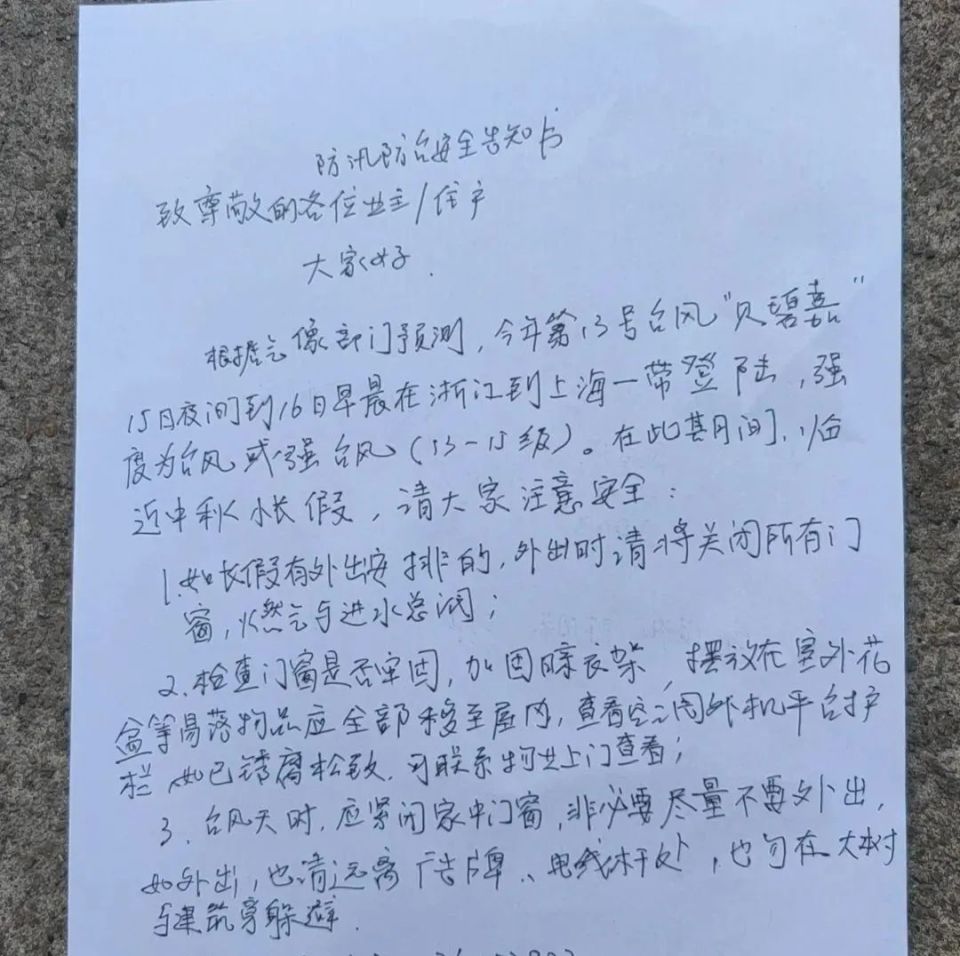 防汛防台安全告知书
致尊敬的各位业主/住户
大家好.
根据气像部门预测,今年第13号台风"贝碧嘉"
15日夜间到16日早晨在浙江到上海一带登陆,强
度为台风或强台风(13-15级)。在此期间,临
近中秋小长假,请大家注意安全:
1.如长假有外出安排的,外出时请将关闭所有门
窗,燃气与进水总阀;
2.检查门窗是否牢固,加固晾衣架,摆放在室外花
盆等易落物品应全部移至屋内,查看空调外机平台护
栏,如已锈腐松致.可联系物业上门查看;
3.台风天时,应紧闭家中门窗,非必要尽量不要外出,
如外出,也请远离广告牌、电线杆处,也勿在大树
与建筑旁躲避.